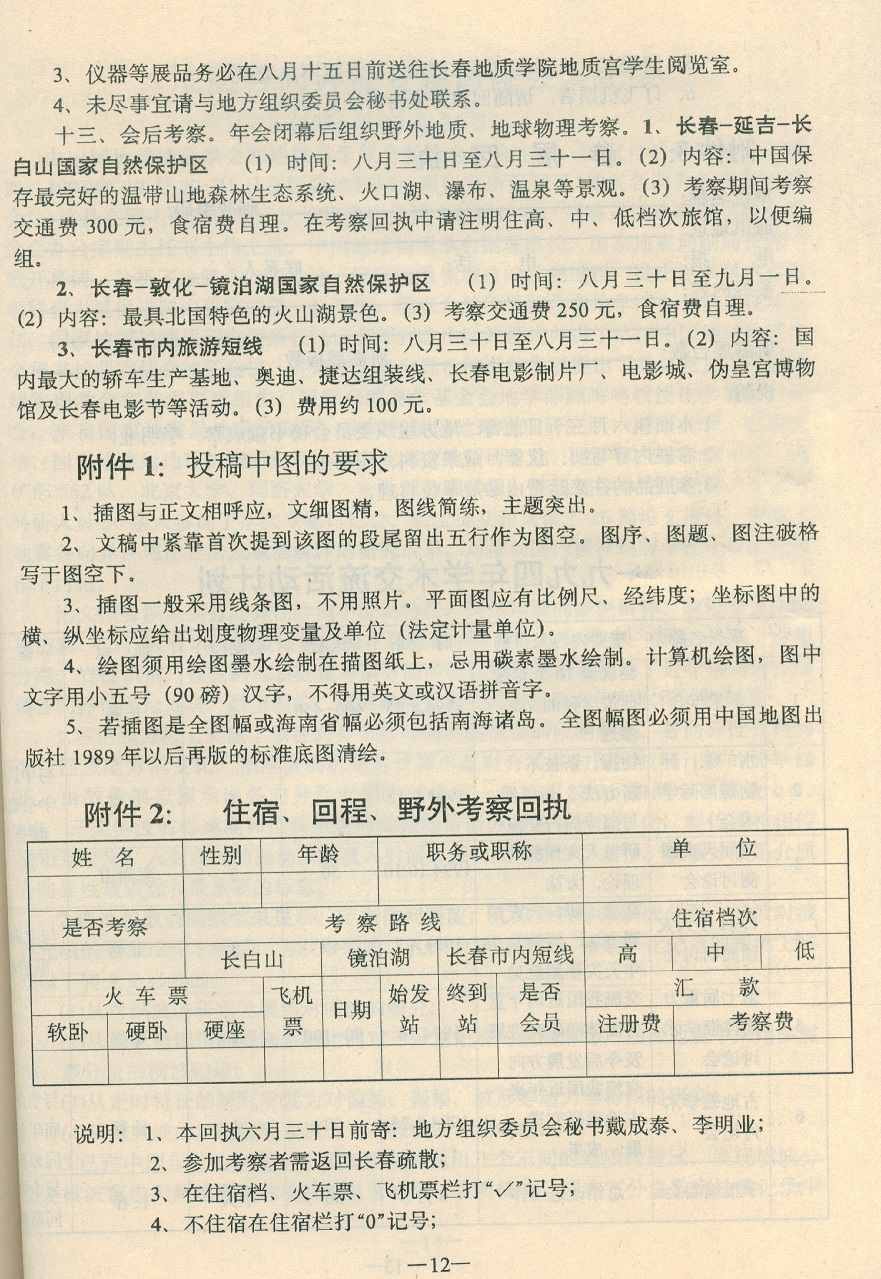 3、仪器等展品务必在八月十五日前送往长春地质学院地质宫学生阅览室。
4、未尽事宜请与地方组织委员会秘书处联系。
十三、会后考察。年会闭幕后组织野外地质、地球物理考察。1、长春-延吉-长
白山国家自然保护区 (1) 时间：八月三十日至八月三十一日。(2) 内容：中国保
存最完好的温带山地森林生态系统、火口湖、瀑布、温泉等景观。(3) 考察期间考察
交通费 300 元，食宿费自理。在考察回执中请注明住高、中、低档次旅馆，以便编
组。
2、长春-敦化-镜泊湖国家自然保护区 (1) 时间：八月三十日至九月一日。
(2) 内容：最具北国特色的火山湖景色。(3) 考察交通费 250 元，食宿费自理。
3、长春市内旅游短线 (1) 时间：八月三十日至八月三十一日。(2) 内容：国
内最大的轿车生产基地、奥迪、捷达组装线、长春电影制片厂、电影城、伪皇宫博物
馆及长春电影节等活动。(3) 费用约 100 元。
附件 1：投稿中图的要求
1、插图与正文相呼应，文细图精，图线简练，主题突出。
2、文稿中紧靠首次提到该图的段尾留出五行作为图空。图序、图题、图注破格
写于图空下。
3、插图一般采用线条图，不用照片。平面图应有比例尺、经纬度；坐标图中的
横、纵坐标应给出划度物理变量及单位（法定计量单位）。
4、绘图须用绘图墨水绘制在描图纸上，忌用碳素墨水绘制。计算机绘图，图中
文字用小五号（90 磅）汉字，不得用英文或汉语拼音字。
5、若插图是全图幅或海南省幅必须包括南海诸岛。全图幅图必须用中国地图出
版社 1989 年以后再版的标准底图清绘。
附件 2： 住宿、回程、野外考察回执
姓 名 性别 年龄 职务或职称 单 位
是否考察 考 察 路 线 住宿档次
长白山 镜泊湖 长春市内短线 高 中 低
火 车 票 飞机票 日期 始发站 终到站 是否会员 汇 款
软卧 硬卧 硬座 注册费 考察费
说明：1、本回执六月三十日前寄：地方组织委员会秘书戴成泰、李明业；
2、参加考察者需返回长春疏散；
3、在住宿档、火车票、飞机票栏打“✓”记号；
4、不住宿在住宿栏打“0”记号；
—12—